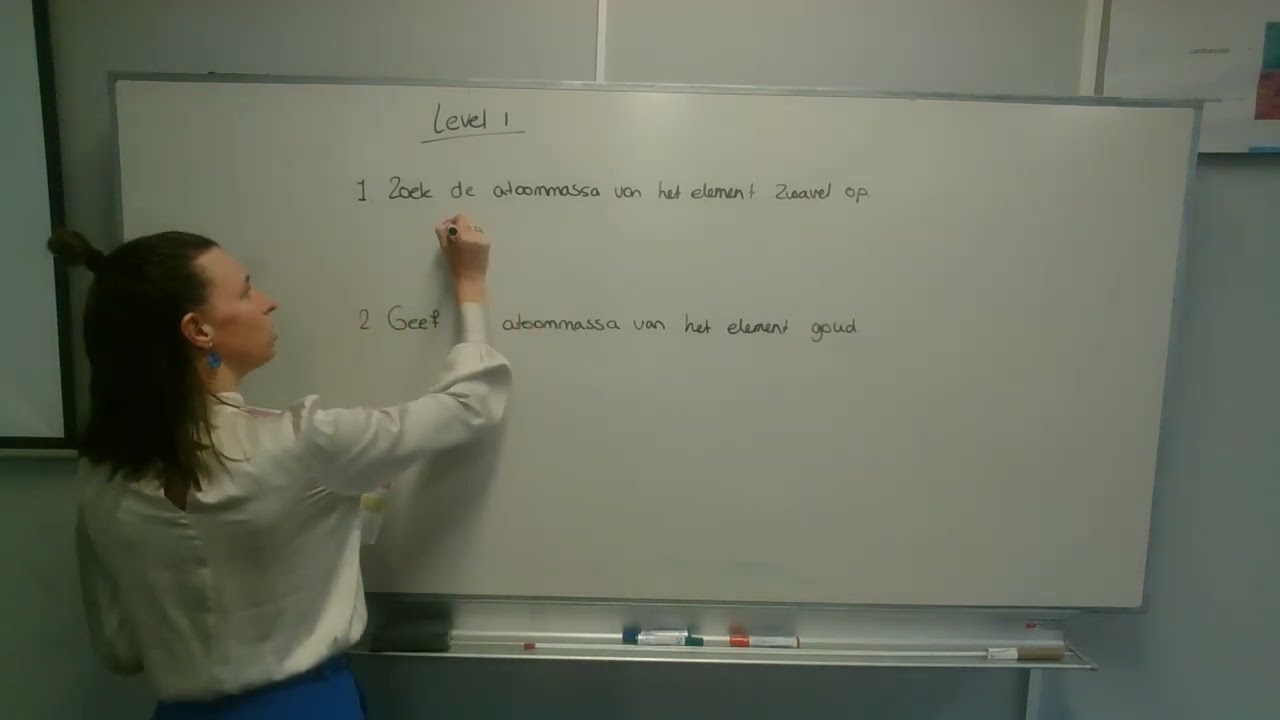 Level 1
1. Zoek de atoommassa van het element zwavel op.
2 Geef atoommassa van het element goud